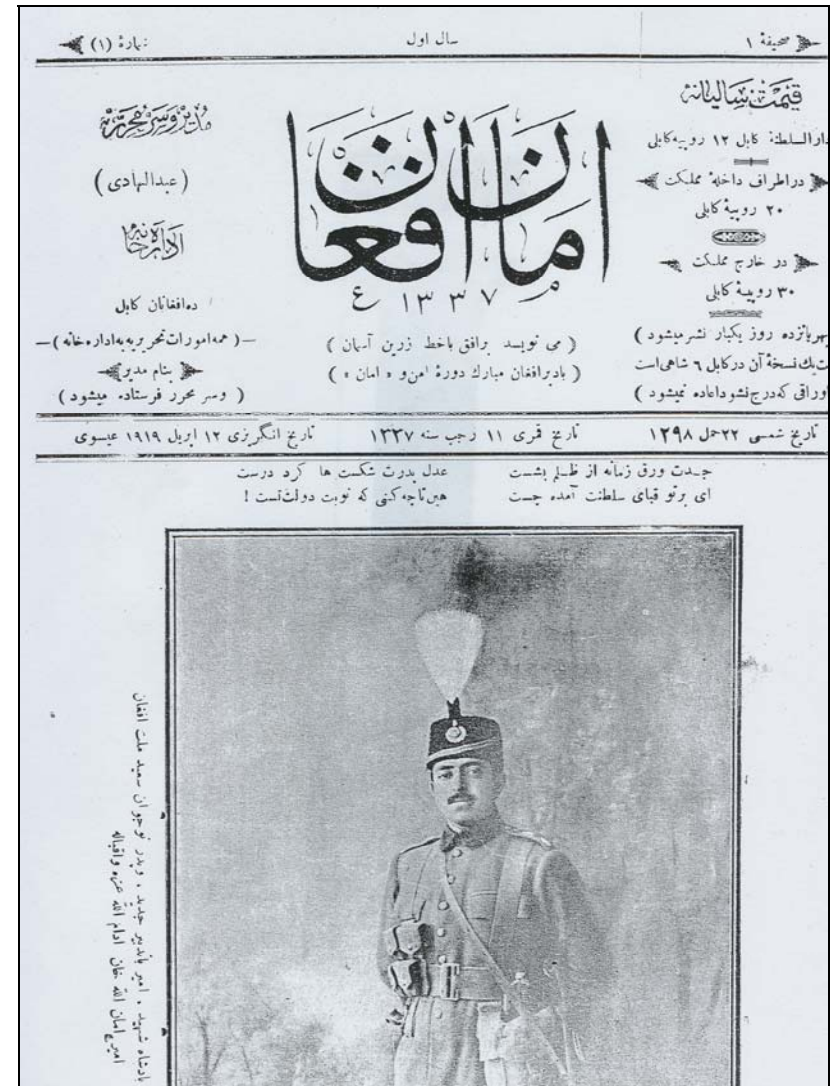 صحیفهٔ ۱
سال اول
نمارهٔ (۱)
قیمت سالیانه
دارالسلطنهٔ کابل ۱۲ روپیه کابلی
در اطراف داخلهٔ مملکت
۲۰ روپیهٔ کابلی
در خارج مملکت
۳۰ روپیهٔ کابلی
بهر پانزده روز یکبار نشر میشود )
یک نسخهٔ آن در کابل ۶ شاهی است
اوراقی که درج نشود اعاده نمیشود )
امان افغان
۱۳۳۷
( می نویسد برافق باخط زرین آسمان )
( باد بر افغان مبارک دورهٔ امن و « امان » )
مدیر و سر محرر
(عبدالهادی)
اداره خانه
ده افغانان کابل
—( همه امورات تحریریه به اداره خانه )—
بنام مدیر
( وسر محرر فرستاده میشود )
تاریخ شمسی ۲۲ حمل ۱۲۹۸
تاریخ قمری ۱۱ رجب سنه ۱۳۳۷
تاریخ انگریزی ۱۲ اپریل ۱۹۱۹ عیسوی
جدت ورق زمانه از ظلم بشست
عدل پدرت شکست ها کرد درست
ای برتو قبای سلطنت آمده چست
هین تا چه کنی که نوبت دولت تست !
پادشاه شهید ، امیر باتدبیر جدید ، وپدر نوجوان سعید ملت افغان
امیر امان الله خان ادام الله عزه واقباله